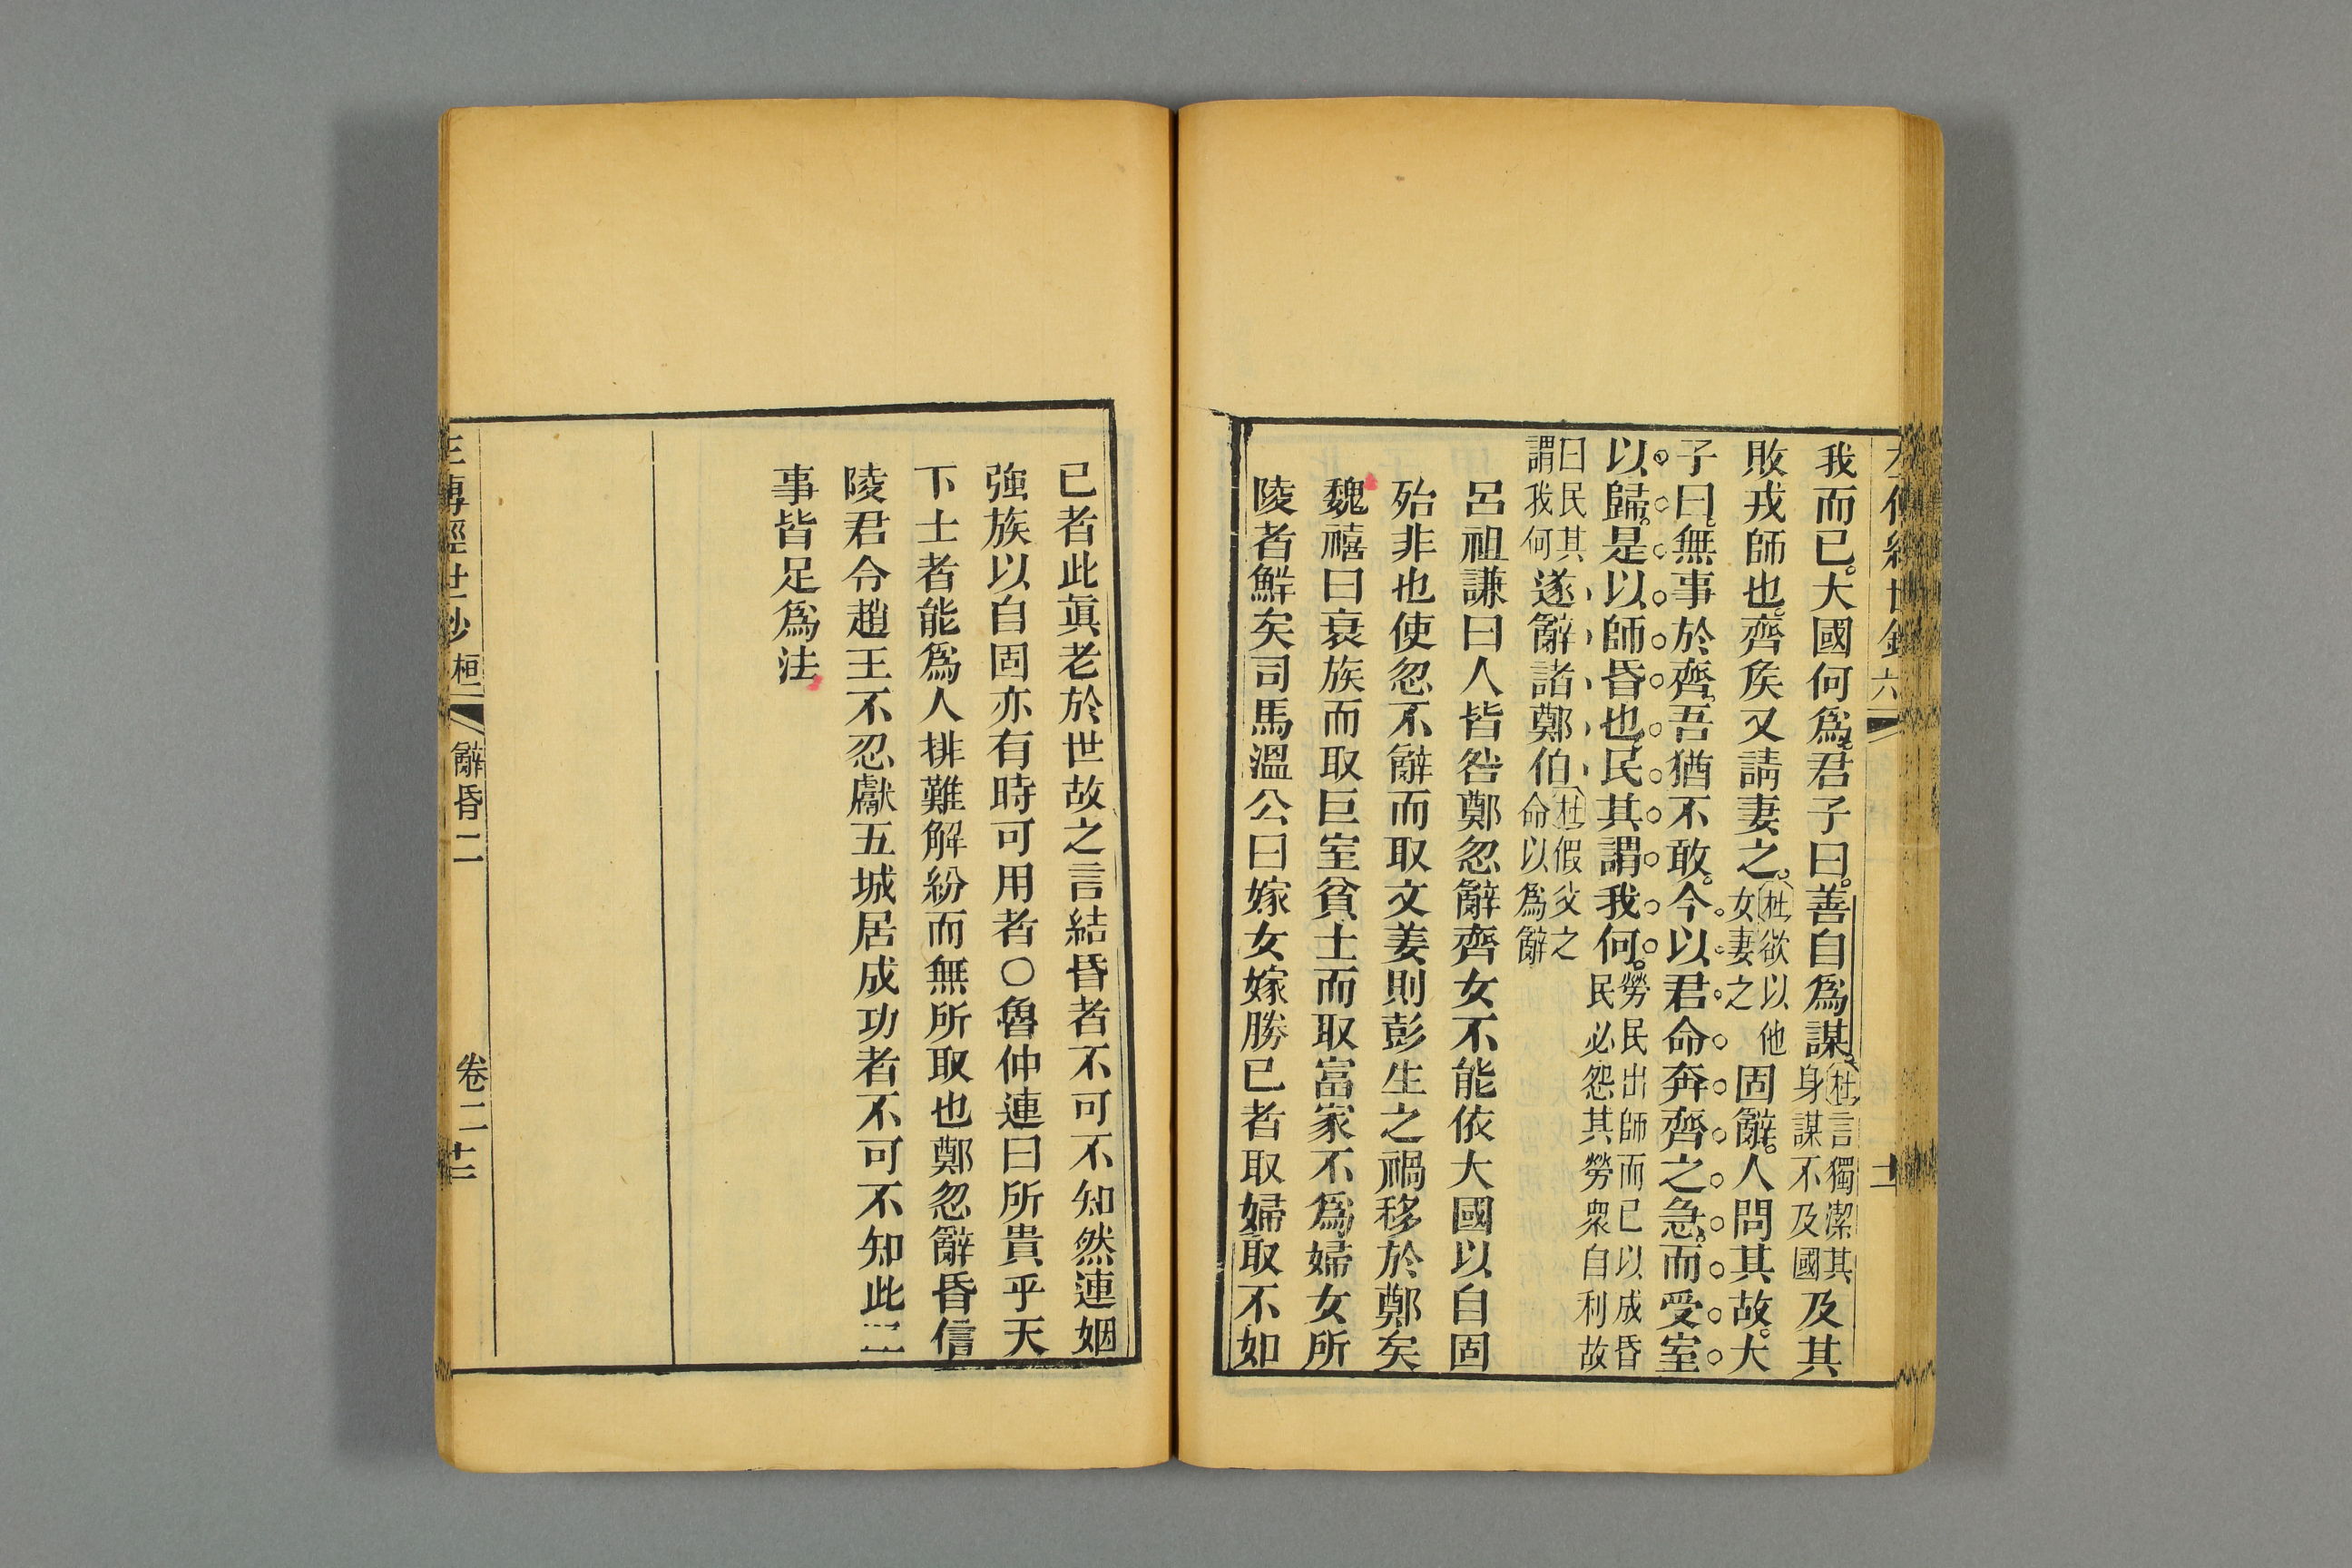 我而已大國何爲君子曰善自爲謀杜言獨潔其身謀不及國及其
敗戎師也齊矦又請妻之杜欲以他女妻之固辭人問其故大
子曰無事於齊吾猶不敢今以君命奔齊之急而受室
以歸是以師昏也民其謂我何勞民出師而已以成昏民必怨其勞衆自利故
曰民其謂我何遂辭諸鄭伯杜假父之命以爲辭
呂祖謙曰人皆咎鄭忽辭齊女不能依大國以自固
殆非也使忽不辭而取文姜則彭生之禍移於鄭矣
魏禧曰衰族而取巨室貧士而取富家不爲婦女所
陵者鮮矣司馬溫公曰嫁女嫁勝已者取婦取不如
已者此眞老於世故之言結昏者不可不知然連姻
強族以自固亦有時可用者○魯仲連曰所貴乎天
下士者能爲人排難解紛而無所取也鄭忽辭昏信
陵君令趙王不忍獻五城居成功者不可不知此二
事皆足爲法
左傳經世鈔 桓 辭昏二 卷二 十二